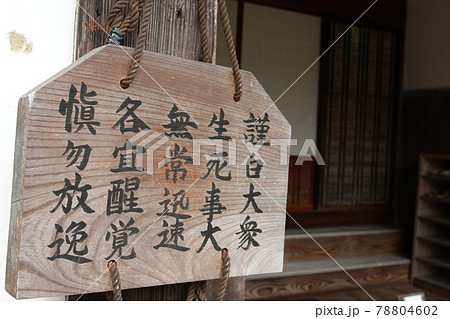 謹白大衆
生死事大
無常迅速
各宜醒覚
慎勿放逸
PIXTA
pixta.jp - 78804602